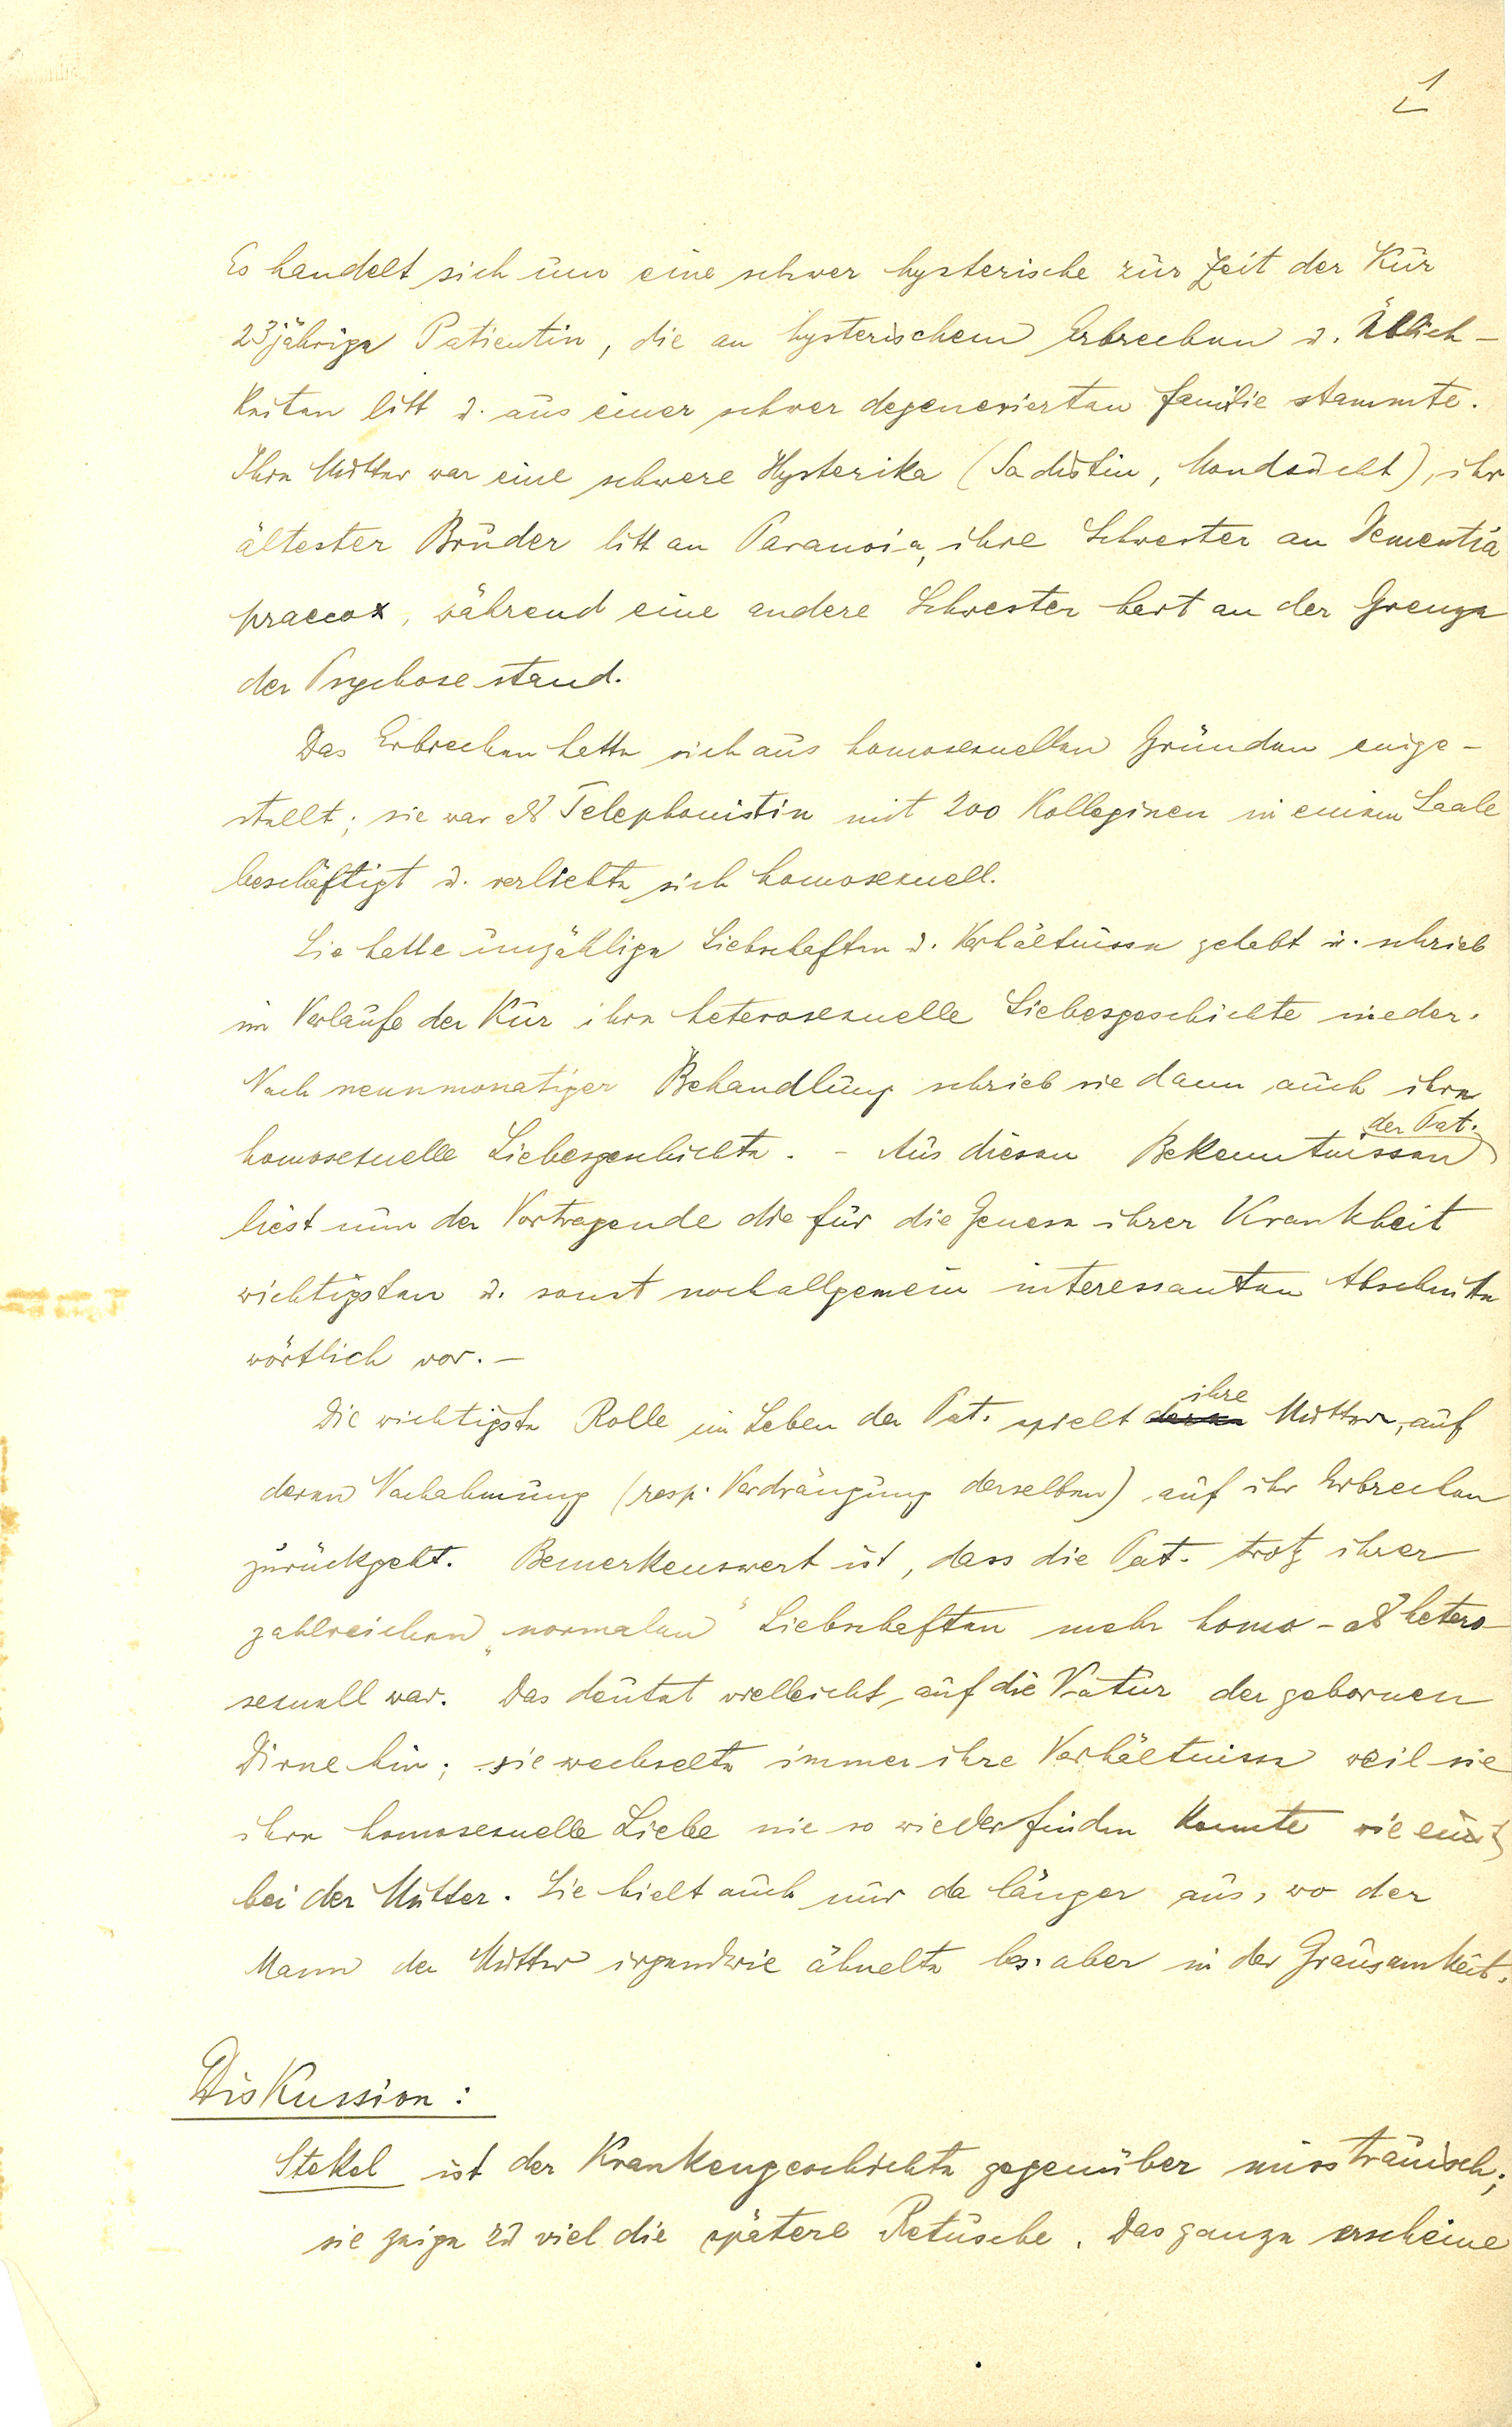 1
Es handelt sich um eine schwer hysterische zur Zeit der Kur
23jährige Patientin, die an hysterischem Erbrechen u. Üblich-
keiten litt u. aus einer schwer degenerierten Familie stammte.
Ihre Mutter war eine schwere Hysterika (Sadistin, Mondsucht), ihr
ältester Bruder litt an Paranoia, ihre Schwester an Dementia
praecox, während eine andere Schwester hart an der Grenze
der Psychose stand.
Das Erbrechen hatte sich aus homosexuellen Gründen einge-
stellt; sie war als Telephonistin mit 200 Kolleginen in einem Saale
beschäftigt u. verliebte sich homosexuell.
Sie hatte unzählige Liebschaften u. Verhältnisse gehabt u. schrieb
im Verlaufe der Kur ihre heterosexuelle Liebesgeschichte nieder.
Nach neunmonatiger Behandlung schrieb sie dann auch ihre
homosexuelle Liebesgeschichte. - Aus diesen Bekenntnissen der Pat.
liest nun der Vortragende die für die Genese ihrer Krankheit
wichtigsten u. sonst noch allgemein interessanten Abschnitte
wörtlich vor. -
Die wichtigste Rolle im Leben der Pat. spielt ihre Mutter, auf
deren Nachahmung (resp. Verdrängung derselben) auf ihr Erbrechen
zurückgeht. Bemerkenswert ist, dass die Pat. trotz ihrer
zahlreichen „normalen" Liebschaften mehr homo- als hetero-
sexuell war. Das deutet vielleicht auf die Natur der gebornen
Dirne hin; sie wechselte immer ihre Verhältnisse weil sie
ihre homosexuelle Liebe nie so wieder finden konnte wie einst
bei der Mutter. Sie hielt auch nur da länger aus, wo der
Mann der Mutter irgendwie ähnelte bes. aber in der Grausamkeit.
Diskussion:
Stekel ist der Krankengeschichte gegenüber misstrauisch;
sie zeige zu viel die spätere Retusche. Das ganze erscheine